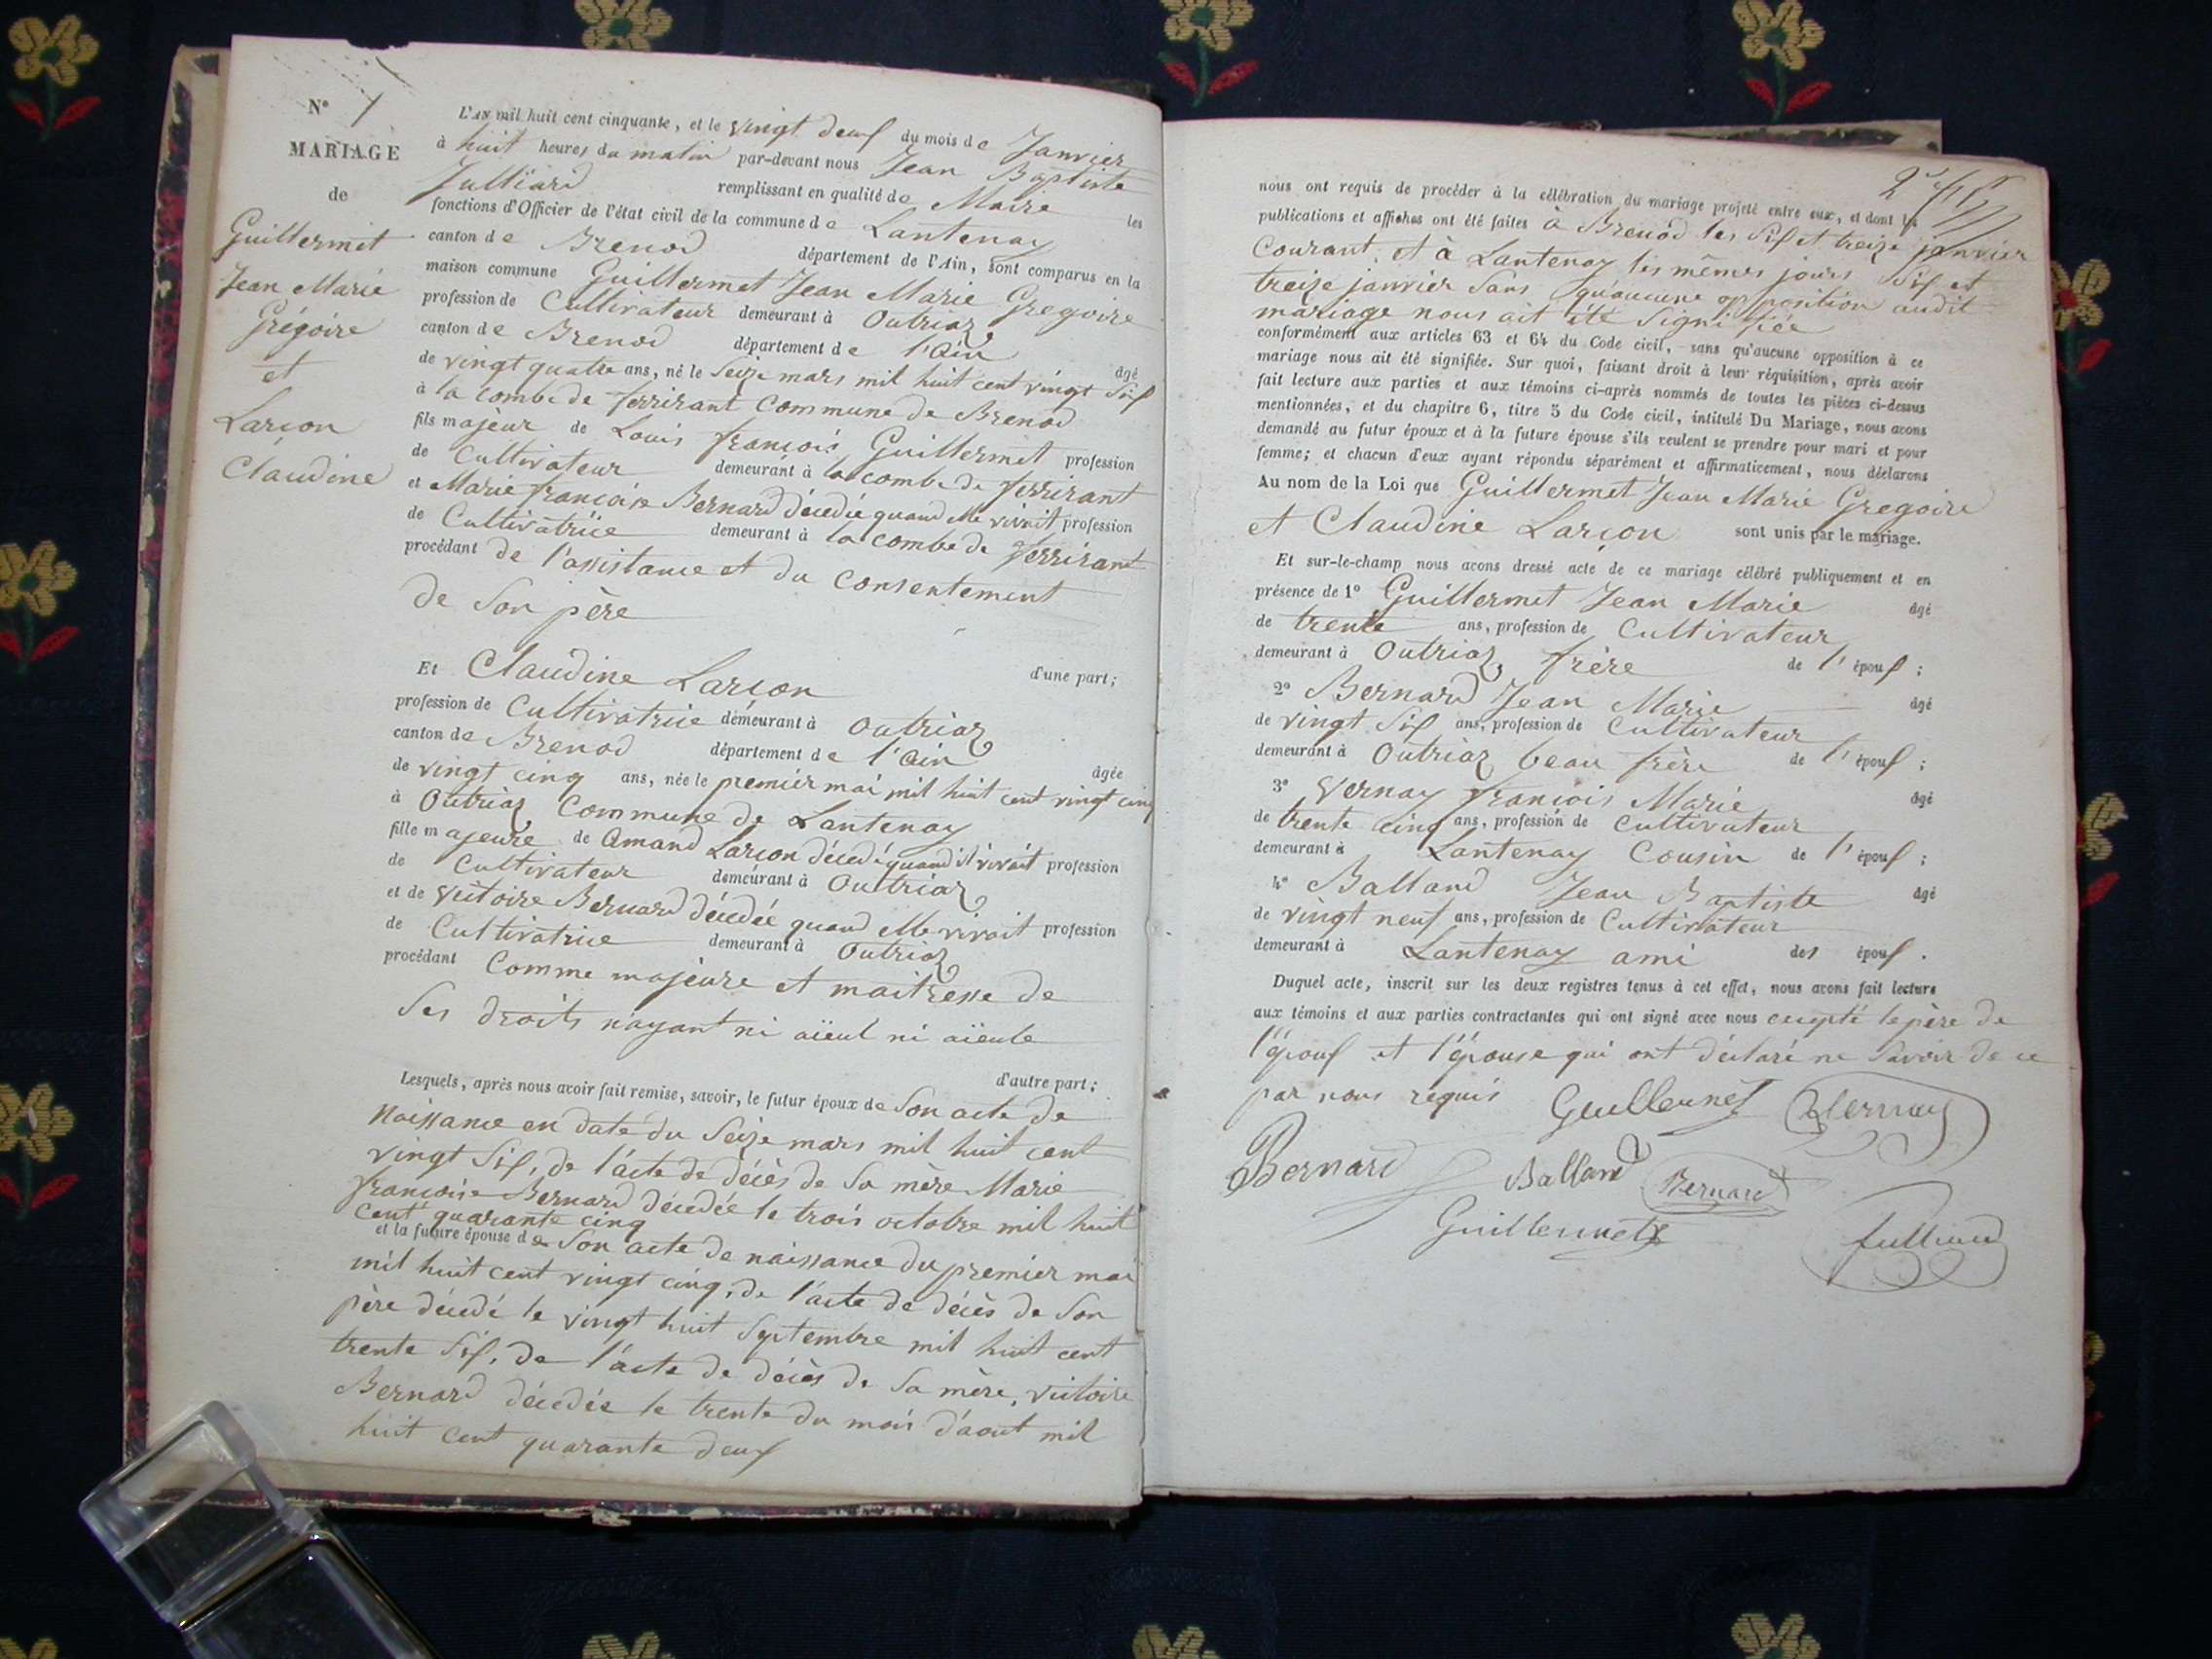 N° 1
MARIAGE
de
Guillermet
Jean Marie
Grégoire
et
Larçon
Claudine
L'AN mil huit cent cinquante, et le vingt deux du mois de Janvier
à huit heures du matin par-devant nous Jean Baptiste
Julliard remplissant en qualité de Maire les
fonctions d'Officier de l'état civil de la commune de Lantenay
canton de Brenod département de l'Ain, sont comparus en la
maison commune Guillermet Jean Marie Gregoire
profession de Cultivateur demeurant à Outriaz
canton de Brenod département de l'Ain âgé
de vingt quatre ans, né le Seize mars mil huit cent vingt Six
à la combe de ferrirant Commune de Brenod
fils majeur de Louis françois Guillermet profession
de Cultivateur demeurant à la combe de ferrirant
et Marie françoise Bernard décédée quand elle vivait profession
de Cultivatrice demeurant à la combe de ferrirant
procédant de l'assistance et du consentement
de Son père
d'une part;
Et Claudine Larçon
profession de Cultivatrice demeurant à Outriaz
canton de Brenod département de l'Ain âgée
de vingt cinq ans, née le premier mai mil huit cent vingt cinq
à Outriaz Commune de Lantenay
fille majeure de Amand Larçon décédé quand il vivait profession
de Cultivateur demeurant à Outriaz
et de Victoire Bernard décédée quand elle vivait profession
de Cultivatrice demeurant à Outriaz
procédant Comme majeure et maitresse de
Ses droits n'ayant ni aïeul ni aïeule
d'autre part;
Lesquels, après nous avoir fait remise, savoir, le futur époux de Son acte de
Naissance en date du Seize mars mil huit cent
vingt Six, de l'acte de décès de Sa mère Marie
françoise Bernard décédée le trois octobre mil huit
cent quarante cinq
et la future épouse de Son acte de naissance du premier mai
mil huit cent vingt cinq, de l'acte de décès de Son
père décédé le vingt huit Septembre mil huit cent
trente Six, de l'acte de décès de Sa mère, Victoire
Bernard décédée le trente du mois d'aout mil
huit cent quarante deux
nous ont requis de procéder à la célébration du mariage projeté entre eux, et dont les
publications et affiches ont été faites à Brenod les Six et treize janvier
Courant, et à Lantenay les mêmes jours Six et
treize janvier Sans qu'aucune opposition audit
mariage nous ait été Signifiée
conformément aux articles 63 et 64 du Code civil, sans qu'aucune opposition à ce
mariage nous ait été signifiée. Sur quoi, faisant droit à leur réquisition, après avoir
fait lecture aux parties et aux témoins ci-après nommés de toutes les pièces ci-dessus
mentionnées, et du chapitre 6, titre 5 du Code civil, intitulé Du Mariage, nous avons
demandé au futur époux et à la future épouse s'ils veulent se prendre pour mari et pour
femme; et chacun d'eux ayant répondu séparément et affirmativement, nous déclarons
Au nom de la Loi que Guillermet Jean Marie Gregoire
et Claudine Larçon sont unis par le mariage.
Et sur-le-champ nous avons dressé acte de ce mariage célébré publiquement et en
présence de 1° Guillermet Jean Marie âgé
de trente ans, profession de Cultivateur
demeurant à Outriaz, frère de l'époux;
2° Bernard Jean Marie âgé
de vingt Six ans, profession de Cultivateur
demeurant à Outriaz beau frère de l'époux;
3° Vernay françois Marie âgé
de trente cinq ans, profession de Cultivateur
demeurant à Lantenay Cousin de l'époux;
4° Balland Jean Baptiste âgé
de vingt neuf ans, profession de Cultivateur
demeurant à Lantenay ami des époux.
Duquel acte, inscrit sur les deux registres tenus à cet effet, nous avons fait lecture
aux témoins et aux parties contractantes qui ont signé avec nous excepté le père de
l'époux et l'épouse qui ont déclaré ne Savoir de ce
par nous requis Guillermet Vernay
Bernard Balland Bernard
Guillermet Julliard